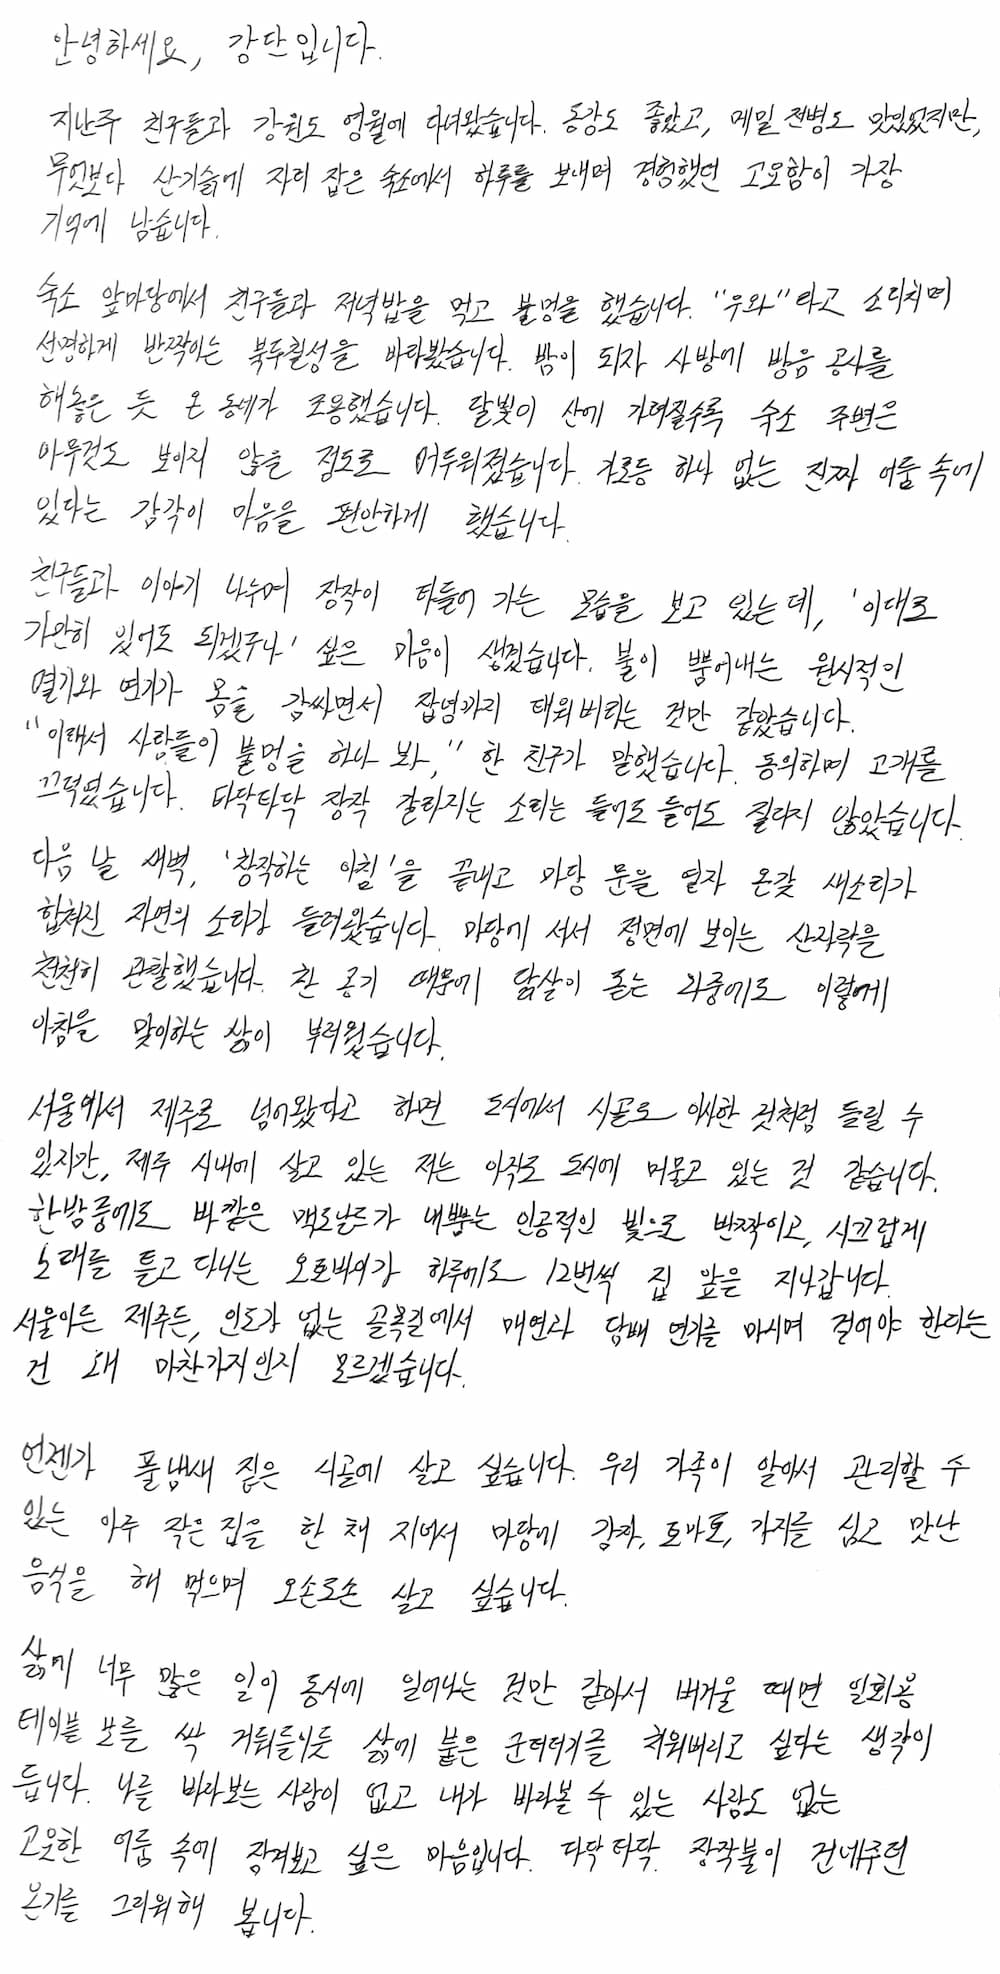 안녕하세요, 강단입니다.
지난주 친구들과 강원도 영월에 다녀왔습니다. 동강도 좋았고, 메밀 전병도 맛있었지만,
무엇보다 산기슭에 자리 잡은 숙소에서 하루를 보내며 경험했던 고요함이 가장
기억에 남습니다.
숙소 앞마당에서 친구들과 저녁밥을 먹고 불멍을 했습니다. "우와"라고 소리치며
선명하게 반짝이는 북두칠성을 바라봤습니다. 밤이 되자 사방에 방음 공사를
해놓은 듯 온 동네가 조용했습니다. 달빛이 산에 가려질수록 숙소 주변은
아무것도 보이지 않을 정도로 어두워졌습니다. 가로등 하나 없는 진짜 어둠 속에
있다는 감각이 마음을 편안하게 했습니다.
친구들과 이야기 나누며 장작이 타들어 가는 모습을 보고 있는데, '이대로
가만히 있어도 되겠구나' 싶은 마음이 생겼습니다. 불이 뿜어내는 원시적인
열기와 연기가 몸을 감싸면서 잡념까지 태워버리는 것만 같았습니다.
"이래서 사람들이 불멍을 하나 봐," 한 친구가 말했습니다. 동의하며 고개를
끄덕였습니다. 타닥타닥 장작 갈라지는 소리는 들어도 들어도 질리지 않았습니다.
다음 날 새벽, '창작하는 아침'을 끝내고 마당 문을 열자 온갖 새소리가
합쳐진 자연의 소리가 들려왔습니다. 마당에 서서 정면에 보이는 산자락을
천천히 관찰했습니다. 찬 공기 때문에 닭살이 돋는 와중에도 이렇게
아침을 맞이하는 삶이 부러웠습니다.
서울에서 제주로 넘어왔다고 하면 도시에서 시골로 이사한 것처럼 들릴 수
있지만, 제주 시내에 살고 있는 저는 아직도 도시에 머물고 있는 것 같습니다.
한밤중에도 바깥은 맥도날드가 내뿜는 인공적인 빛으로 반짝이고, 시끄럽게
노래를 틀고 다니는 오토바이가 하루에도 12번씩 집 앞을 지나갑니다.
서울이든 제주든, 인도가 없는 골목길에서 매연과 담배 연기를 마시며 걸어야 한다는
건 왜 마찬가지인지 모르겠습니다.
언젠가 풀냄새 짙은 시골에 살고 싶습니다. 우리 가족이 알아서 관리할 수
있는 아주 작은 집을 한 채 지어서 마당에 감자, 토마토, 가지를 심고 맛난
음식을 해 먹으며 오손도손 살고 싶습니다.
삶에 너무 많은 일이 동시에 일어나는 것만 같아서 버거울 때면 일회용
테이블 보를 싹 거둬들이듯 삶에 붙은 군더더기를 치워버리고 싶다는 생각이
듭니다. 나를 바라보는 사람이 없고 내가 바라볼 수 있는 사람도 없는
고요한 어둠 속에 잠겨보고 싶은 마음입니다. 타닥타닥. 장작불이 건네주던
온기를 그리워해 봅니다.